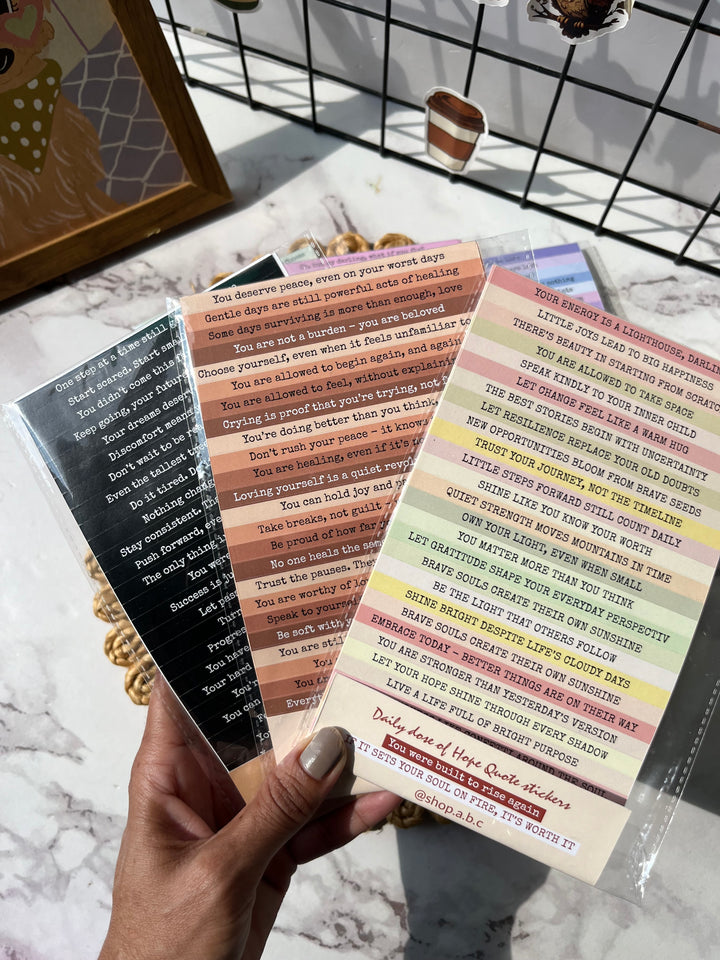 One step at a time still
Start scared. Start sma
You didn't come this f
Keep going, your future
Your dreams deser
Discomfort mean
Don't wait to be
Even the tallest t
Do it tired. D
Nothing chan
Stay consistent.
Push forward, eve
The only thing i
You were
Success is ju
Let pas
Turn
Progres
You have
Your hard
You'r
You can
You deserve peace, even on your worst days
Gentle days are still powerful acts of healing
Some days surviving is more than enough, love
You are not a burden - you are beloved
Choose yourself, even when it feels unfamiliar to
You are allowed to begin again, and again
You are allowed to feel, without explainin
Crying is proof that you're trying, not
You're doing better than you think,
Don't rush your peace - it knows
You are healing, even if it's
Loving yourself is a quiet revol
You can hold joy and p
Take breaks, not guilt
Be proud of how far
No one heals the sam
Trust the pauses. The
You are worthy of lo
Speak to yoursel
Be soft with y
You are stil
You
You ar
Every
YOUR ENERGY IS A LIGHTHOUSE, DARLIN
LITTLE JOYS LEAD TO BIG HAPPINESS
THERE'S BEAUTY IN STARTING FROM SCRATC
YOU ARE ALLOWED TO TAKE SPACE
SPEAK KINDLY TO YOUR INNER CHILD
LET CHANGE FEEL LIKE A WARM HUG
THE BEST STORIES BEGIN WITH UNCERTAINTY
LET RESILIENCE REPLACE YOUR OLD DOUBTS
NEW OPPORTUNITIES BLOOM FROM BRAVE SEEDS
TRUST YOUR JOURNEY, NOT THE TIMELINE
LITTLE STEPS FORWARD STILL COUNT DAILY
SHINE LIKE YOU KNOW YOUR WORTH
QUIET STRENGTH MOVES MOUNTAINS IN TIME
OWN YOUR LIGHT, EVEN WHEN SMALL
YOU MATTER MORE THAN YOU THINK
LET GRATITUDE SHAPE YOUR EVERYDAY PERSPECTIV
BRAVE SOULS CREATE THEIR OWN SUNSHINE
BE THE LIGHT THAT OTHERS FOLLOW
SHINE BRIGHT DESPITE LIFE'S CLOUDY DAYS
BRAVE SOULS CREATE THEIR OWN SUNSHINE
EMBRACE TODAY - BETTER THINGS ARE ON THEIR WAY
YOU ARE STRONGER THAN YESTERDAY'S VERSION
LET YOUR HOPE SHINE THROUGH EVERY SHADOW
LIVE A LIFE FULL OF BRIGHT PURPOSE
AROUND THE SOUL
Daily dose of Hope Quote stickers
You were built to rise again
IT SETS YOUR SOUL ON FIRE, IT'S WORTH IT
@shop.a.b.c